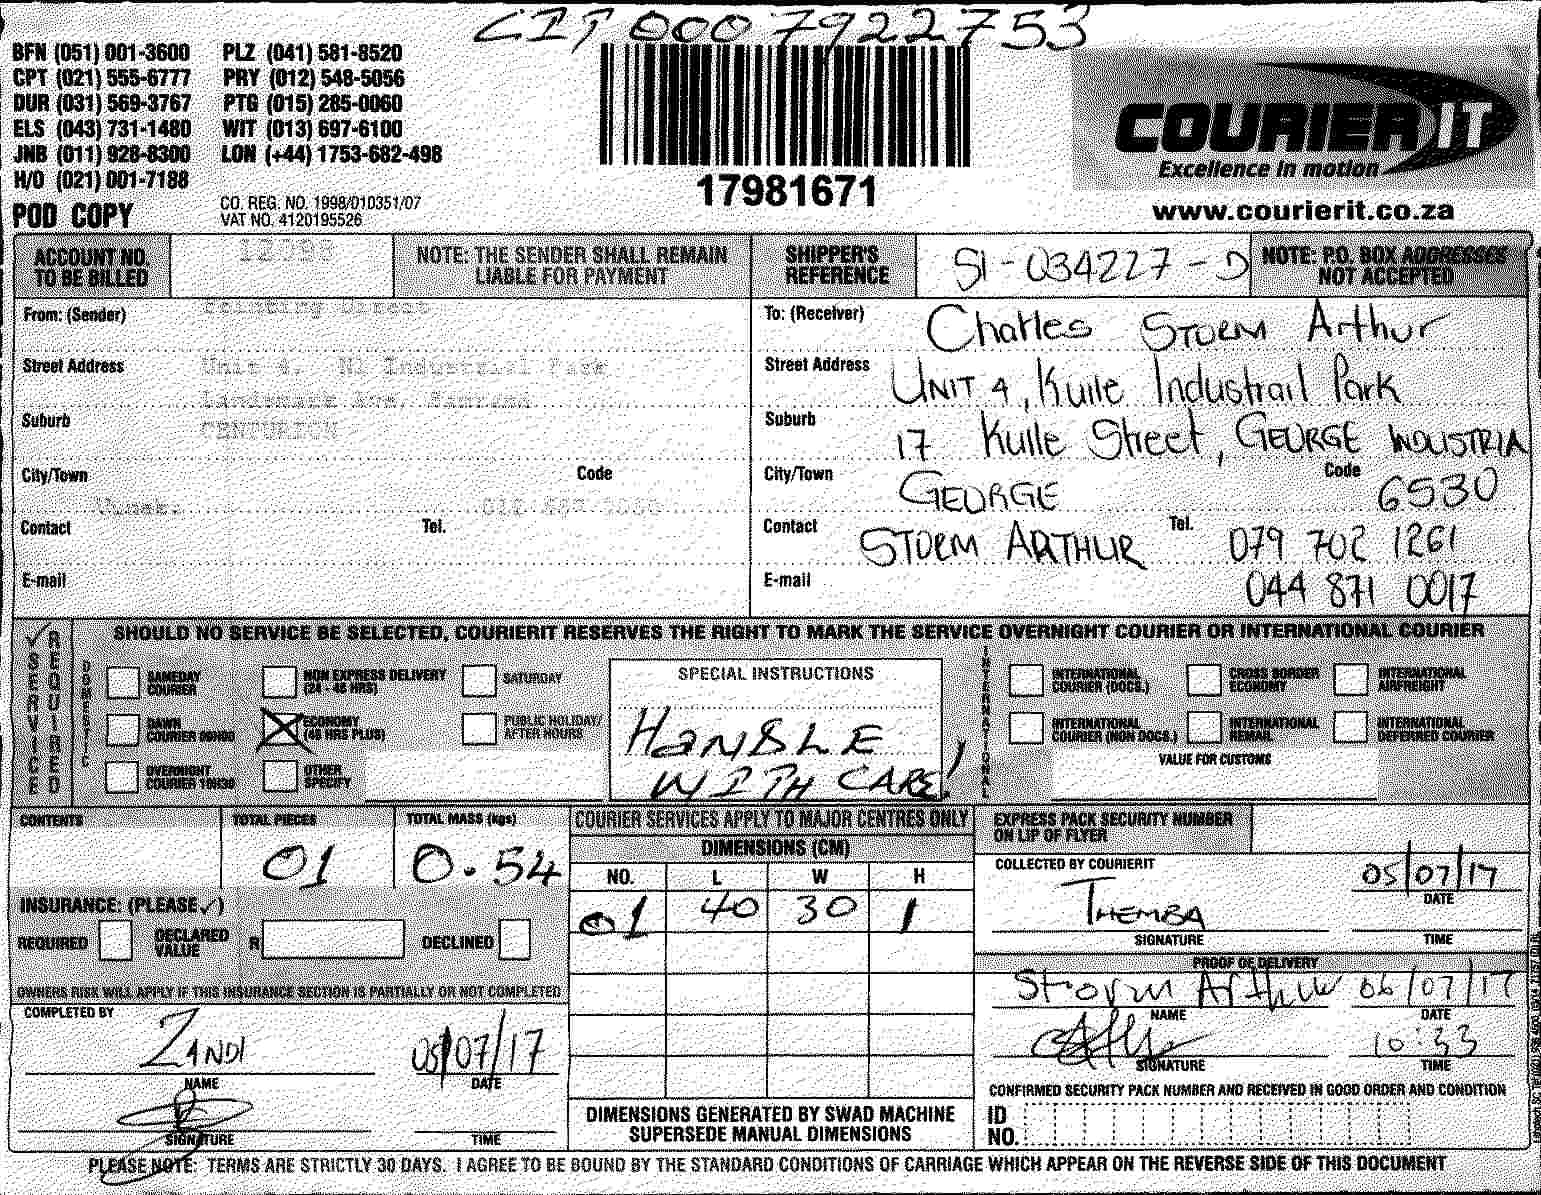 CIT0007922753
BFN (051) 001-3600 PLZ (041) 581-8520
CPT (021) 555-6777 PRY (012) 548-5056
DUR (031) 569-3767 PTG (015) 285-0060
ELS (043) 731-1480 WIT (013) 697-6100
JNB (011) 928-8300 LON (+44) 1753-682-498
H/O (021) 001-7188
POD COPY
CO. REG. NO. 1998/010351/07
VAT NO. 4120195526
17981671
COURIER IT
Excellence in motion
www.courierit.co.za
ACCOUNT NO. TO BE BILLED
NOTE: THE SENDER SHALL REMAIN LIABLE FOR PAYMENT
SHIPPER'S REFERENCE
SI-034227-D
NOTE: P.O. BOX ADDRESSES NOT ACCEPTED
From: (Sender) Printing Direct
Street Address Unit 4, N1 Industrial Park
Landmark Ave, Samrand
Suburb CENTURION
City/Town Code
Contact Tel. 012
E-mail
To: (Receiver) Charles Storm Arthur
Street Address UNIT 4, Kuile Industrail Park
Suburb 17 Kuile Street, GEORGE INDUSTRIA
City/Town GEORGE Code 6530
Contact STORM ARTHUR Tel. 079 702 1261
E-mail 044 871 0017
✓ SERVICE REQUIRED
SHOULD NO SERVICE BE SELECTED, COURIERIT RESERVES THE RIGHT TO MARK THE SERVICE OVERNIGHT COURIER OR INTERNATIONAL COURIER
DOMESTIC
SAMEDAY COURIER
NON EXPRESS DELIVERY (24 - 48 HRS)
SATURDAY
DAWN COURIER 09H00
ECONOMY (48 HRS PLUS)
PUBLIC HOLIDAY/ AFTER HOURS
OVERNIGHT COURIER 10H30
OTHER SPECIFY
SPECIAL INSTRUCTIONS
HANDLE
WITH CARE!
INTERNATIONAL
INTERNATIONAL COURIER (DOCS.)
CROSS BORDER ECONOMY
INTERNATIONAL AIRFREIGHT
INTERNATIONAL COURIER (NON DOCS.)
INTERNATIONAL REMAIL
INTERNATIONAL DEFERRED COURIER
VALUE FOR CUSTOMS
CONTENTS
TOTAL PIECES
01
TOTAL MASS (kgs)
0.54
INSURANCE: (PLEASE ✓)
REQUIRED
DECLARED VALUE R
DECLINED
OWNERS RISK WILL APPLY IF THIS INSURANCE SECTION IS PARTIALLY OR NOT COMPLETED
COMPLETED BY
ZANDI 05/07/17
NAME DATE
SIGNATURE TIME
COURIER SERVICES APPLY TO MAJOR CENTRES ONLY
DIMENSIONS (CM)
NO. L W H
01 40 30 1
DIMENSIONS GENERATED BY SWAD MACHINE
SUPERSEDE MANUAL DIMENSIONS
EXPRESS PACK SECURITY NUMBER ON LIP OF FLYER
COLLECTED BY COURIERIT
THEMBA 05/07/17
DATE
SIGNATURE TIME
PROOF OF DELIVERY
Storm Arthur 06/07/17
NAME DATE
10:33
SIGNATURE TIME
CONFIRMED SECURITY PACK NUMBER AND RECEIVED IN GOOD ORDER AND CONDITION
ID NO.
PLEASE NOTE: TERMS ARE STRICTLY 30 DAYS. I AGREE TO BE BOUND BY THE STANDARD CONDITIONS OF CARRIAGE WHICH APPEAR ON THE REVERSE SIDE OF THIS DOCUMENT